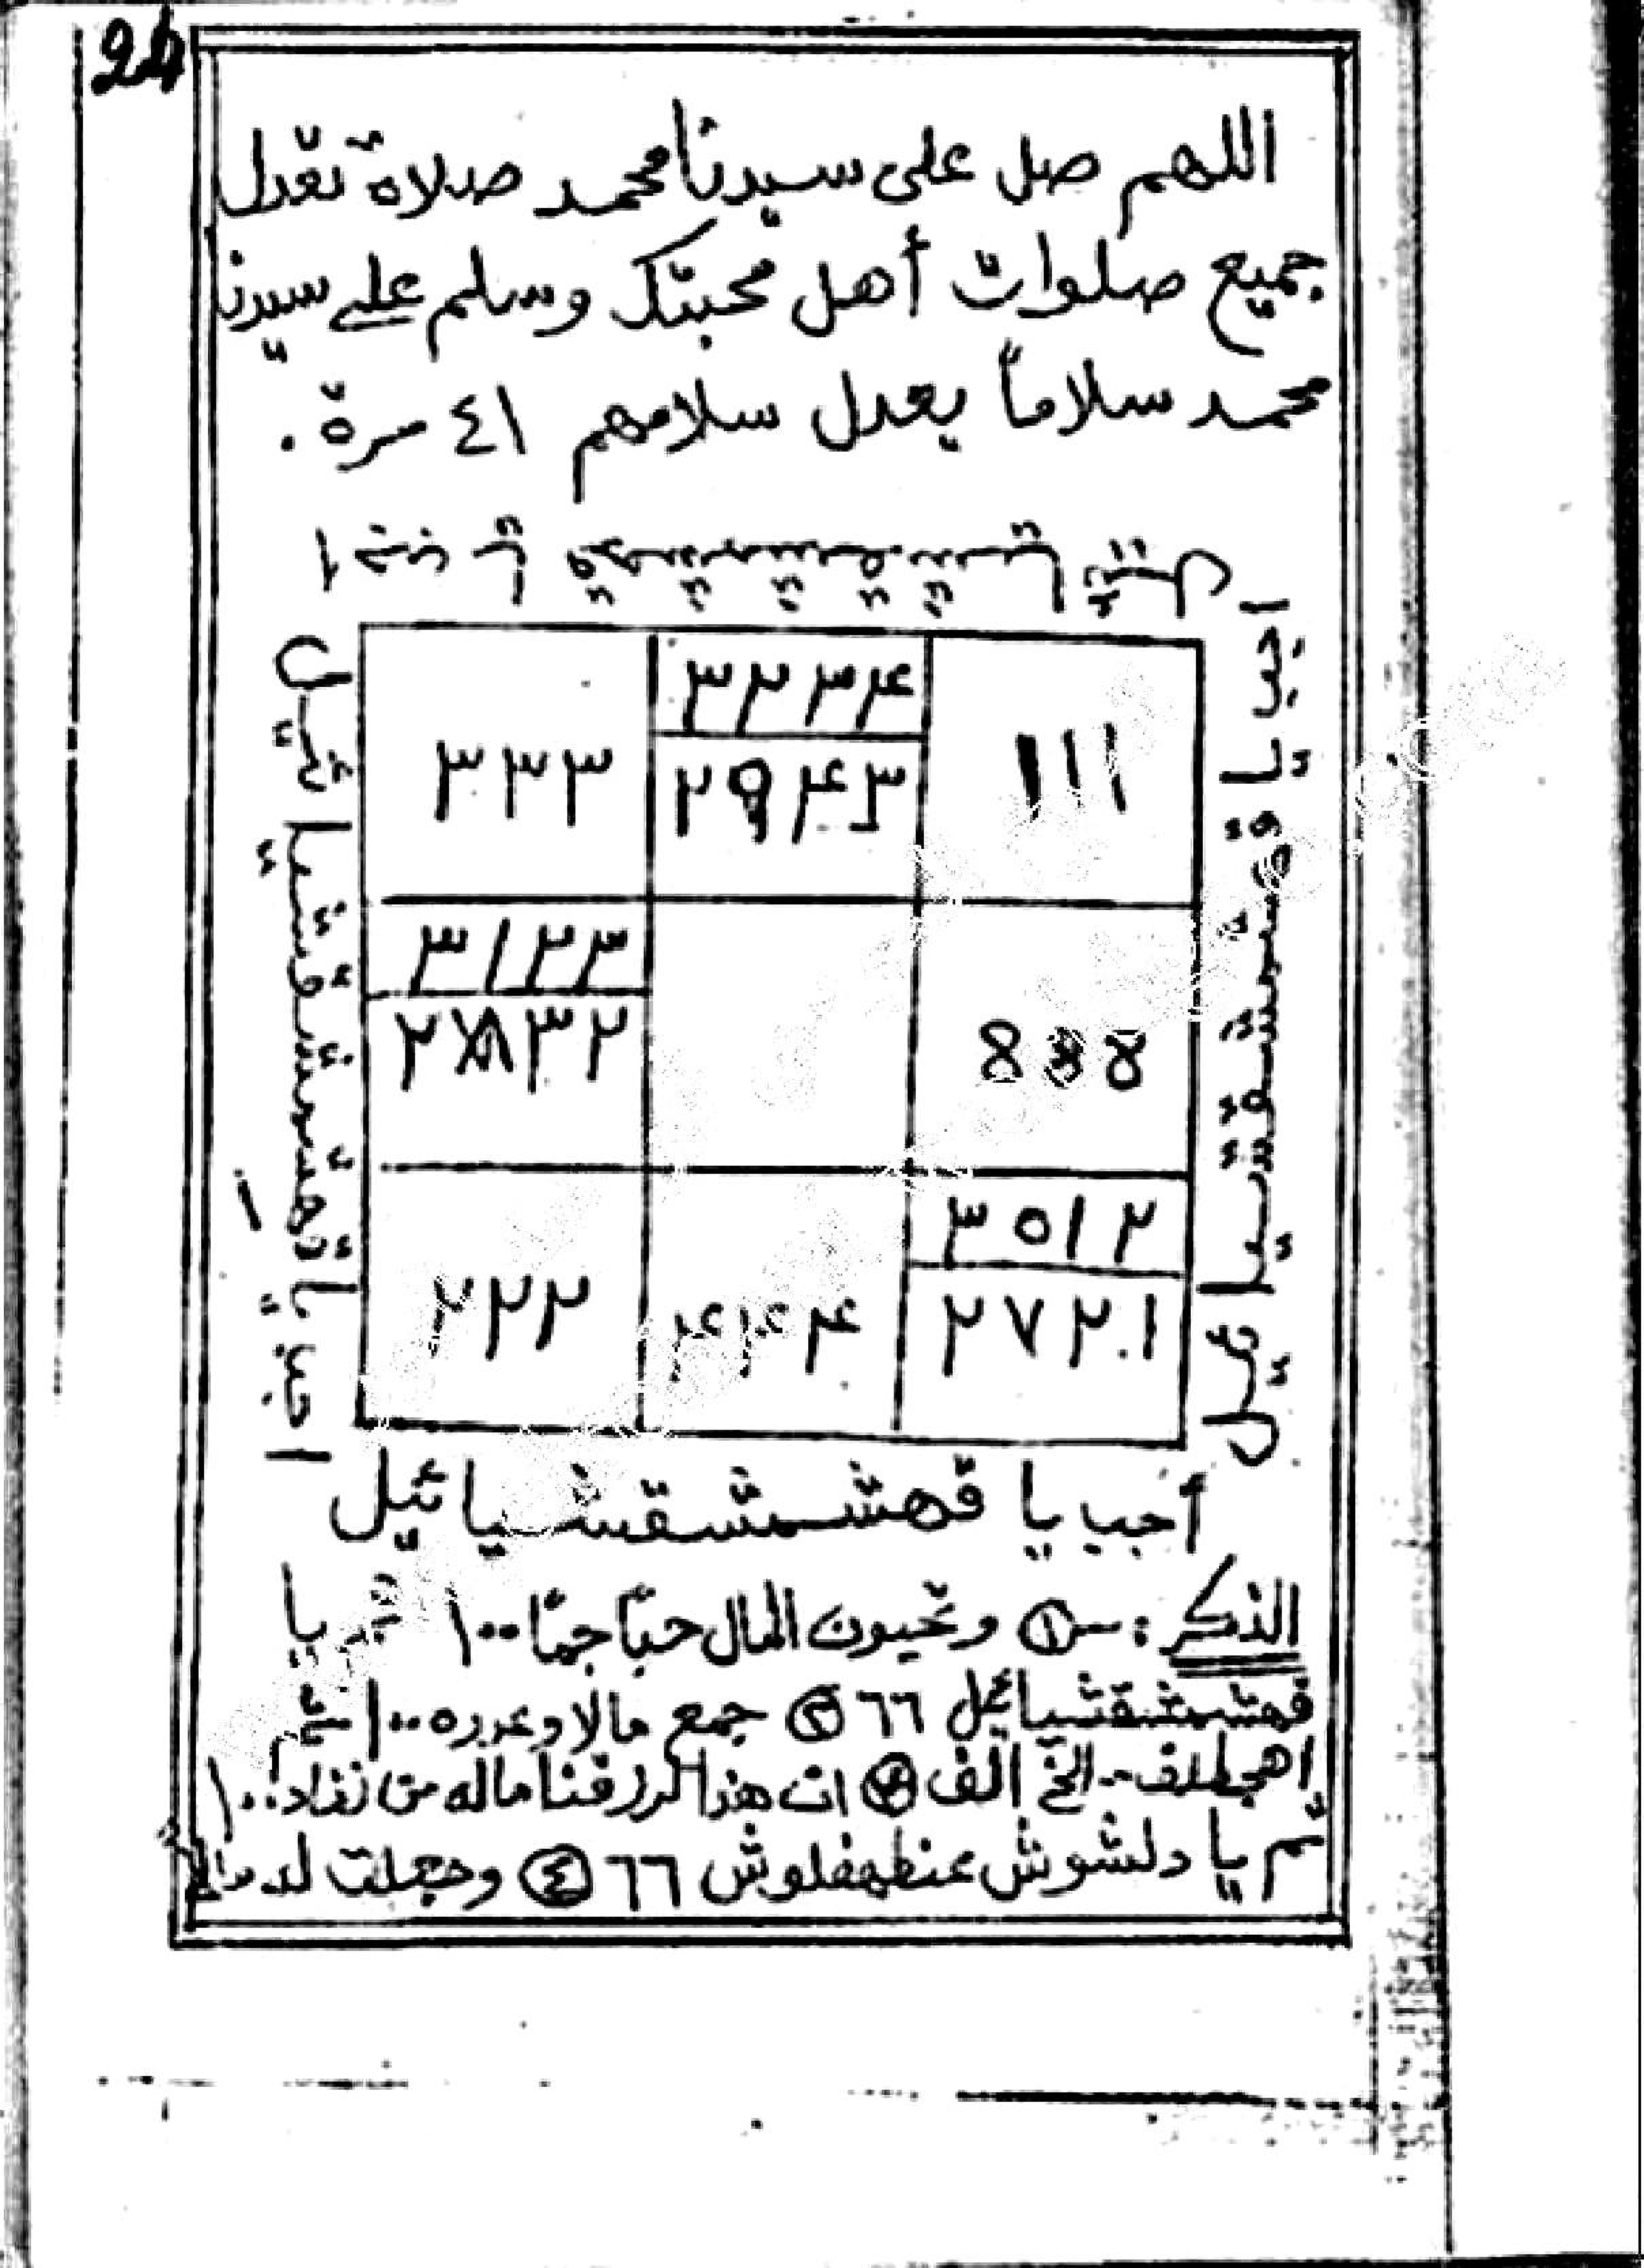 24
اللهم صل على سيدنا محمد صلاة تعدل
جميع صلوات أهل محبتك وسلم على سيدنا
محمد سلاماً يعدل سلامهم ٤١ مرة .
٣٣٣
٣٢٣٤
٢٩٤٣
١١١
أجب يا قهشمشقشيائيل
٣١٢٣
٢٧٨٣٢
٢٢٢
٤٤٤
٣٥١٢
٢٧٢١
أجب يا قهشمشقشيائيل
الذكر : س ① وتحبون المال حبّا جمّا ١٠٠ يا
قهشمشقشيائيل ٦٦ ② جمع مالا وعدده ١٠٠ ثم
اهجطلف .. الخ الف ③ ان هذا لرزقنا ماله من نفاد ١٠٠
ثم يا دلشوش عنطهفلوش ٦٦ ④ وجعلت له